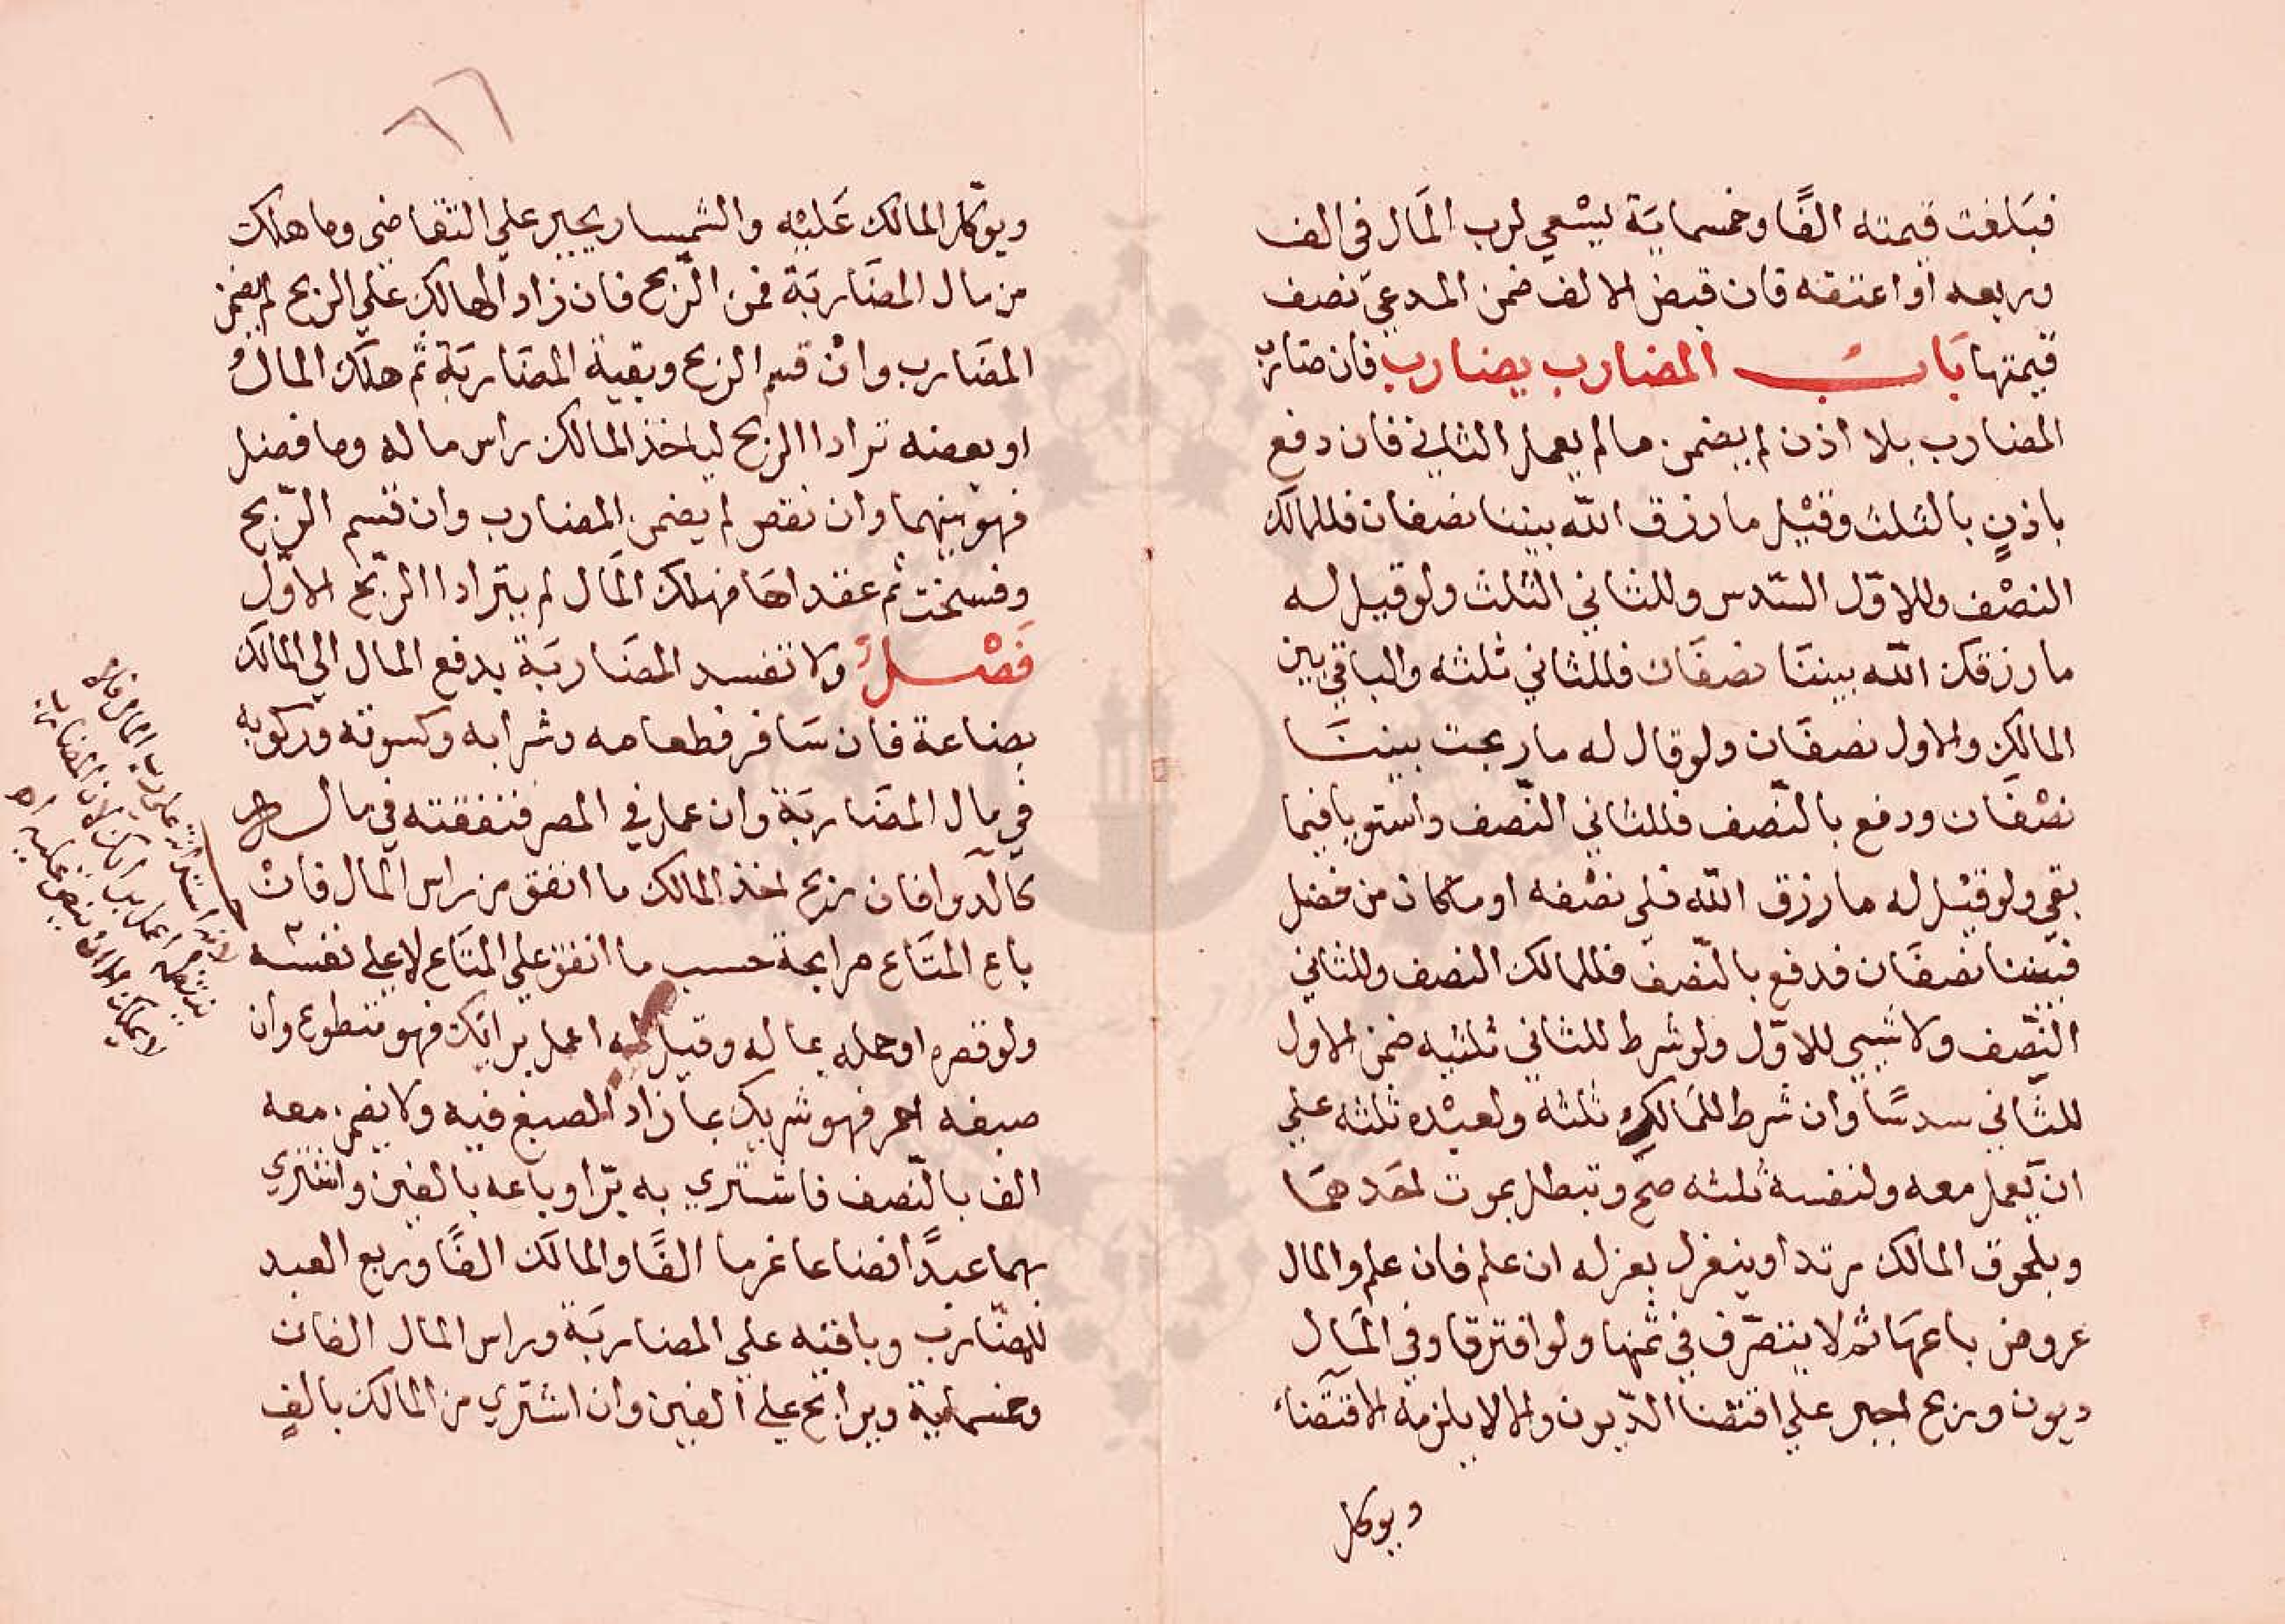 فبَلغت قيمته الفًا وخمسماية ليسْعي لرب المَال في الف
وربعه او اعتقه فان قبض الالف ضمن المدعي نصف
قيمتها بَابُ المضارب يضارب فان ضارب
المضارب بلا اذن لم يضمن مالم يعمل الثاني فان دفع
باذنٍ بالثلث وقيْل ما رزق الله بيننا نصفان فللمالك
النصْف وللاوّل السّدس وللثاني الثلث ولو قيل له
ما رزقك الله بيننَا نصفَان فللثاني ثلثه والباقي بين
المالك والاول نصفَان ولو قال له ما ربحت بيننَا
نصْفَان ودفع بالنّصف فللثاني النّصف واستويا فيما
بقي ولو قيْل له ما رزق الله فلي نصْفه او ما كان من فضل
فبيننا نصفَان فدفع بالنّصف فللمالك النصف وللثاني
النّصف ولا شيي للاوّل ولو شرط للثاني ثلثيه ضمن الاول
للثّاني سدسًا وان شرط للمَالك ثلثه ولعبْده ثلثه علي
ان يَعمل معه ولنفسه ثلثه صحّ وتبطل بموت احَدهمَا
وبلحوق المالك مرتدا وينعزل بعزله ان علم فان علم والمال
عروض باعهَا ثم لا يتصرّف في ثمنها ولو افترقا وفي المَال
ديون وربح اجبر علي اقتضا الدّيون والا لا يلزمه الاقتضاء
ويوكل
٨٦
ويوكّل المالك عَليْه والسّمسار يجبر علي التقاضي وما هلك
من مال المضَاربَة فمن الرّبح فان زاد الهالك علي الربح لم يضمن
المضَارب وانْ قسم الربح وبقية المضَاربَة ثم هلَك المالُ
او بعضه تراداا الربح لياخذ المالك راس ماله وما فضل
فهو بينهما وان نقص لم يضمن المضارب وان قسم الرّبح
وفسخت ثم عقداهَا فهلك المَال لم يتراداا الربّح الاوّل
فَصْلٌ ولا تفسد المضَاربَة بدفع المال الي المالك
بضاعة فان سَافر فطعامه وشرابه وكسوته وركوبه
في مال المضَاربَة وان عمل في المصر فنفقته في ماله
كالدّوا فان ربح اخذ المالك ما انفق من راس المال فانْ
باع المتَاع مرابحة حسب ما انفق علي المتَاع لا علي نفسه
ولو قصره او حمله بماله وقيل له اعمل برايك فهو متطوع وان
صبغه احمر فهو شريك بما زاد الصبغ فيه ولا يضمن معه
الف بالنّصف فاشتري به بزّا وباعه بالفين واشتري
بهما عبدًا فضاعا غرما الفًا والمالَك الفًا وربع العبد
للمضَارب وباقيه علي المضاربَة وراس المال الفان
وخمسماية ويرابح علي الفين وان اشتري من المالك بالفٍ
لانه استدانة علي رب المال فلا
اعمل برايك لان المضارب